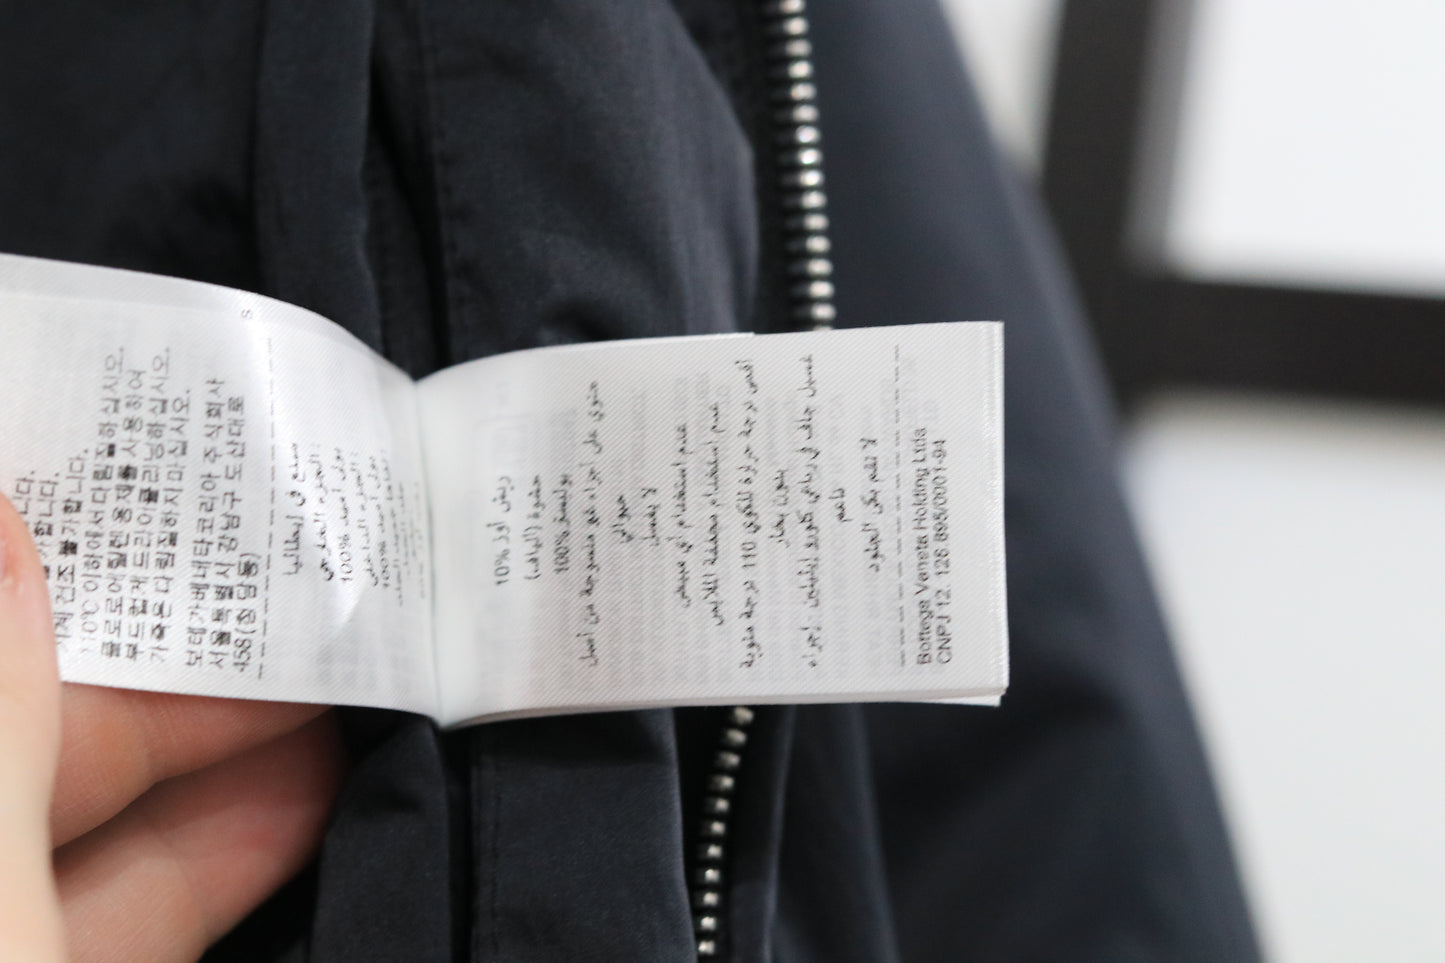 니다.
가합니다.
기계 건조 불가합니다.
110℃ 이하에서 다림질하십시오.
클로로에틸렌 용제를 사용하여
부드럽게 드라이클리닝하십시오.
가죽은 다림질하지 마십시오.
보테가베네타코리아 주식회사
서울특별시 강남구 도산대로
458(청담동)
S
صنع في إيطاليا
الجزء الخارجي:
بولي أميد %100
الجزء الداخلي:
بولي أميد %100
ريش أوز %10
حشوة (الياف:)
بوليستر %100
حتوي على أجزاء غير منسوجة من أصل
حيواني
لا يغسل
عدم استخدام أي مبيض
عدم استخدام مجففة الملابس
أقصى درجة حرارة للكوي 110 درجة مئوية
بدون بخار
غسيل جاف في رباعي كلورو إيثيلين إجراء
ناعم
لا تقم بكي الجلود
Bottega Veneta Holding Ltda
CNPJ 12. 126 895/0001-94